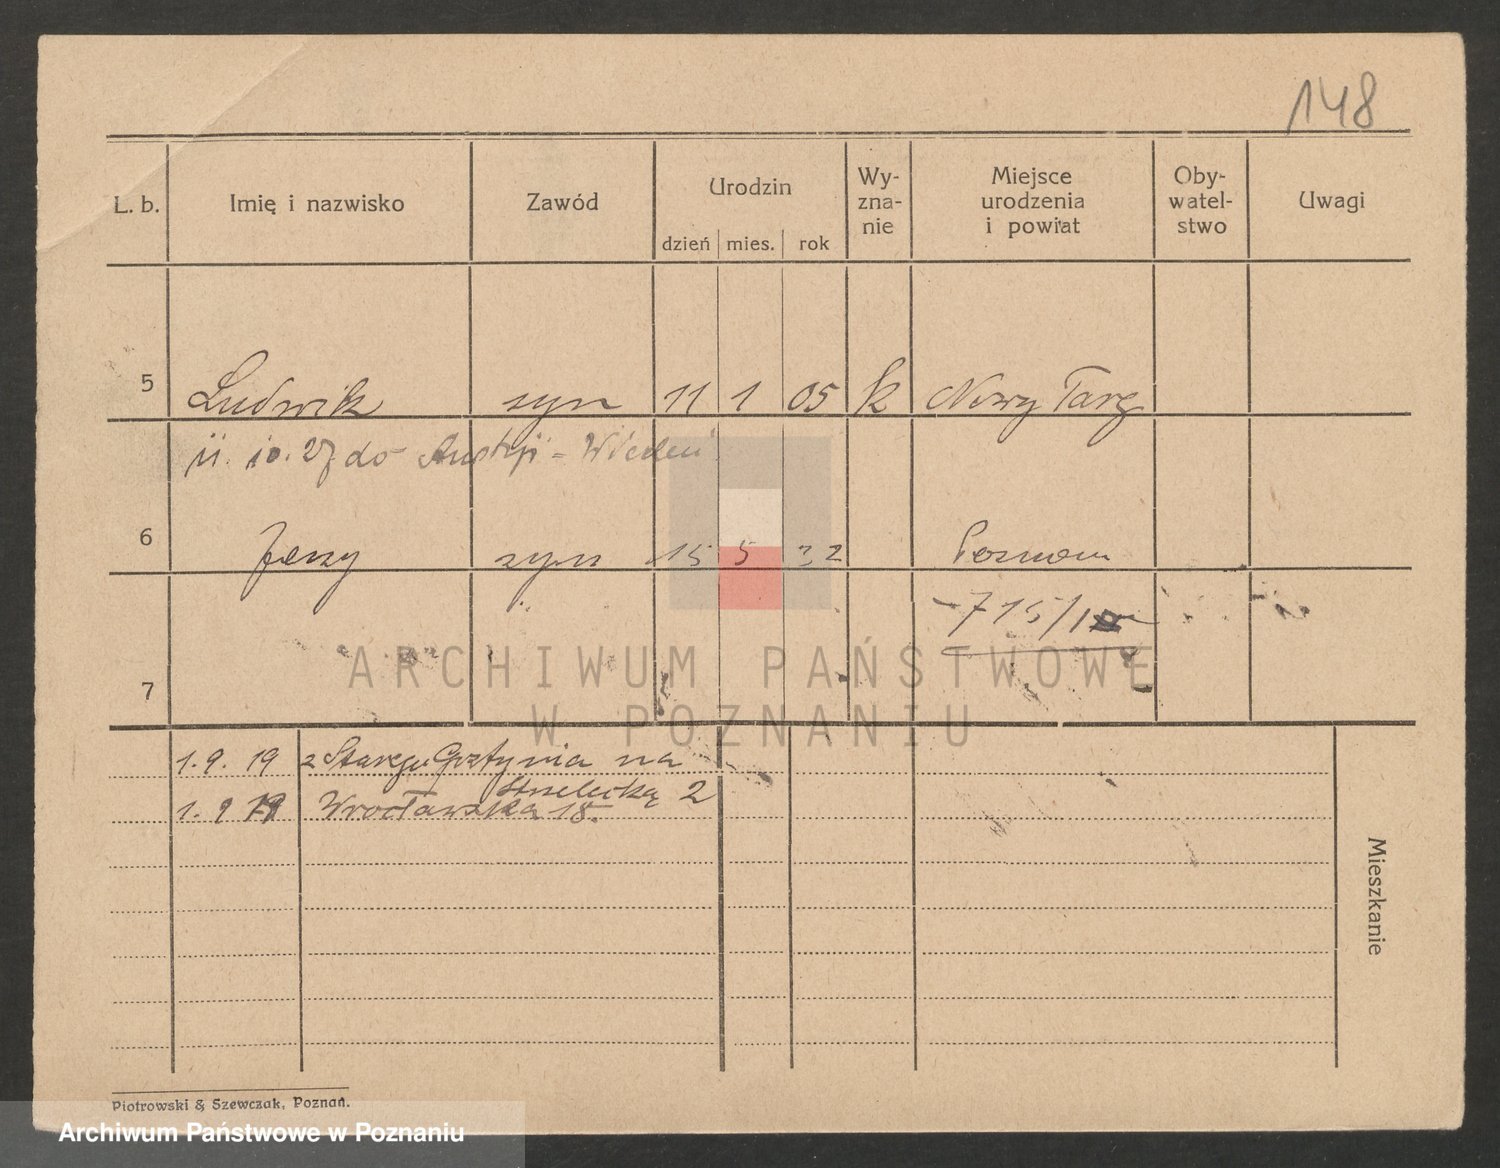 148
L. b. Imię i nazwisko Zawód Urodzin Wy-zna-nie Miejsce urodzenia i powiat Oby-watel-stwo Uwagi
dzień mies. rok
5 Ludwik syn 11 1 05 k Nowy Targ
11. 10. 27 do Austrji - Wiedeń
6 Jerzy syn 15 5 22 Poznan
715/1
7
ARCHIWUM PAŃSTWOWE
W POZNANIU
1. 9. 19 z Starego na
Strzelecką 2
1. 9 19 Wrocławska 18.
Mieszkanie
Piotrowski & Szewczak, Poznań.
Archiwum Państwowe w Poznaniu